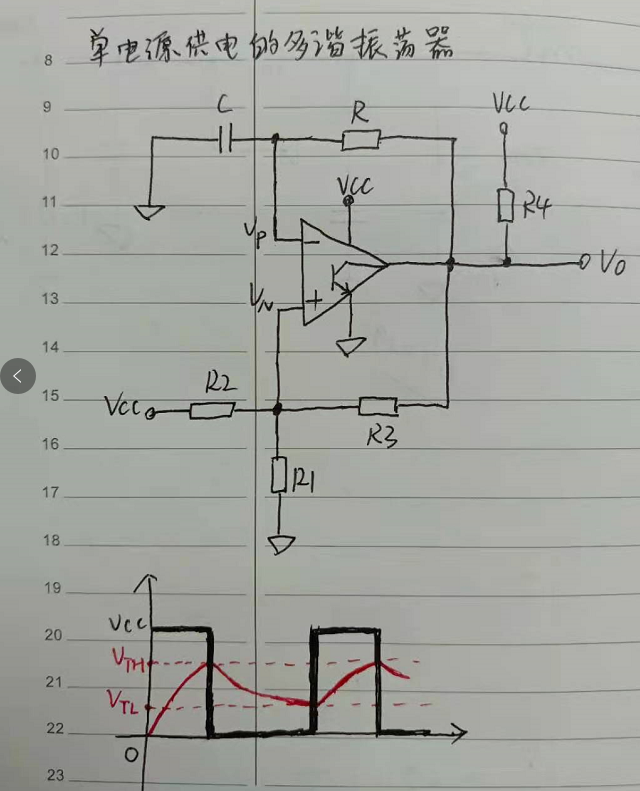 单电源供电的多谐振荡器
8
9
C
R
VCC
10
11
VCC
R4
12
VP
-
VO
13
VN
+
14
15
R2
VCC
R3
16
R1
17
18
19
VCC
20
VTH
21
VTL
22
O
23